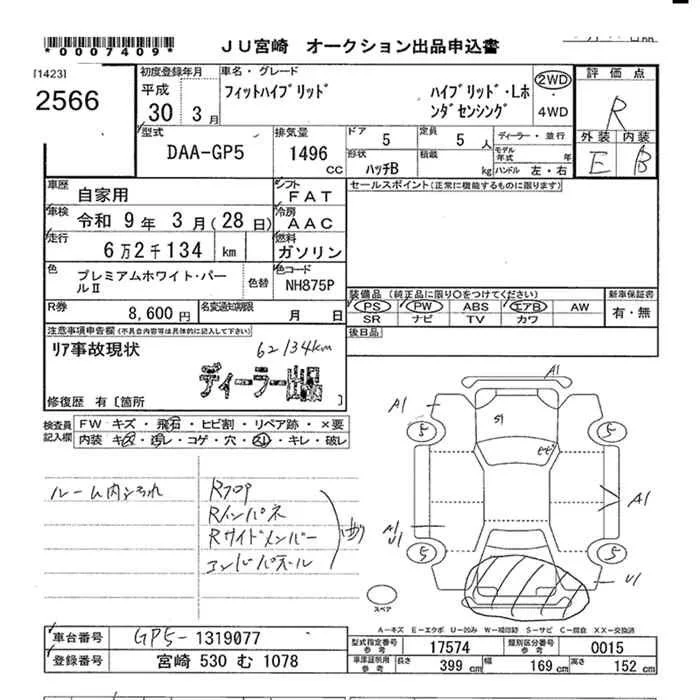 *0007409*
JU宮崎 オークション出品申込書
[1423]
2566
初度登録年月
平成
30 3 月
車名・グレード
フィットハイブリッド
ハイブリッド・Lホ
ンダセンシング
2WD
4WD
評価点
R
外装 内装
E B
型式
DAA-GP5
排気量
1496
cc
ドア 5
定員 5 人
形状 ハッチB
積載 kg
ディーラー・並行
モデル年式 年
ハンドル 左・右
車歴 自家用
シフト FAT
車検 令和 9 年 3 月(28 日)
冷房 AAC
走行 6万2千134 km
燃料 ガソリン
色 プレミアムホワイト・パー
ルⅡ
色替
色コード NH875P
R券 8,600円
名変通知期限 月 日
セールスポイント(正常に機能するものに限ります)
装備品(純正品に限り○をつけてください)
新車保証書
PS PW ABS エアB AW
SR ナビ TV カワ
有・無
後日品
注意事項申告欄(不具合内容等は具体的に記入して下さい)
リア事故現状
62134km
ディーラー出品
修復歴 有〔箇所 〕
検査員
記入欄
FW キズ・飛石・ヒビ割・リペア跡・×要
内装 キズ・汚レ・コゲ・穴・スレ・キレ・破レ
ルーム内ヨゴレ
Rフロア
Rインパネ
Rサイドメンバー
エンドパネル
曲
A1
A1
S1
ヒビ
5 5
A1
A1
U1
5 5
U1
スペア
A-キズ E-エクボ U-凹み W-補修跡 S-サビ C-腐食 XX-交換済
車台番号 GP5-1319077
登録番号 宮崎 530 む 1078
型式指定番号
参考
17574
類別区分番号
参考
0015
車庫証明用
参考
長さ 399 cm
幅 169 cm
高さ 152 cm